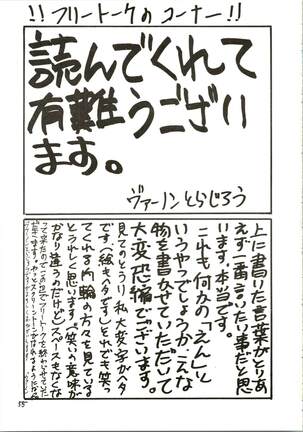 !!フリートークのコーナー!!
読んでくれて
有難うござり
ます。
ヴァーノンとらじろう
上に書いた言葉がとりあ
えず一番言いたい事だと思
います。本当です。
これも何かの「えん」と
いうやつでしょうか、こんな
物を書かせていただいて
大変恐縮でございます。
見てのとうり、私大変字がヘタ
です(絵もヘタです)。それでも笑っ
てくれる内輪の方々を見ている
とうれしく思います。(笑いの意味が
かなり違う)だけどスペースもなくな
って来たのでこの辺でフリートークを終わらせていた